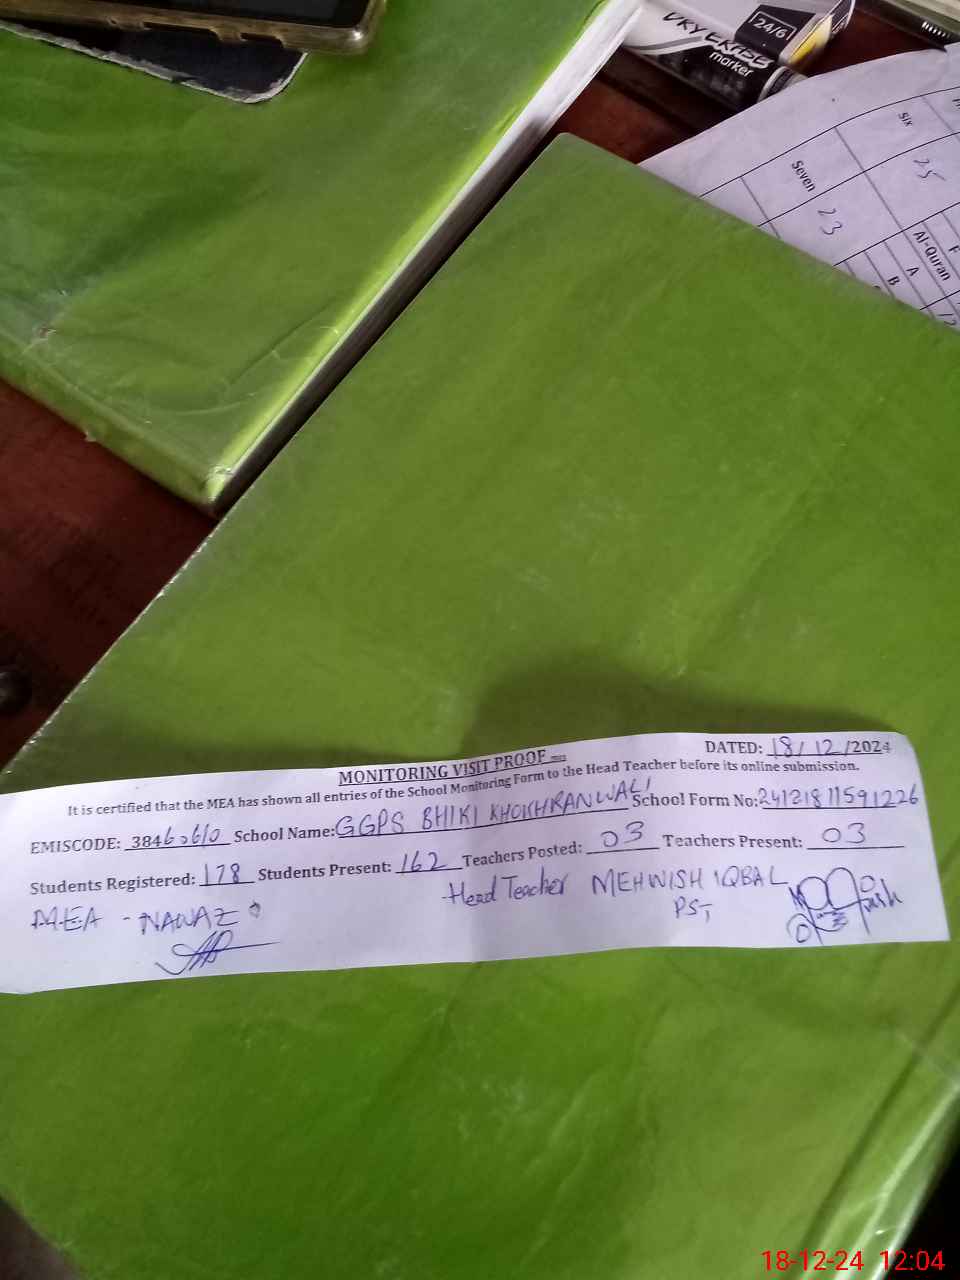 DRY ERASE
marker
24/6
Six 25
Seven 23
F
Al-Quran
A
B
MONITORING VISIT PROOF
DATED: 18/12/2024
It is certified that the MEA has shown all entries of the School Monitoring Form to the Head Teacher before its online submission.
EMISCODE: 38460610 School Name: GGPS BHIKI KHOKHRANWALI School Form No: 24121811591226
Students Registered: 178 Students Present: 162 Teachers Posted: 03 Teachers Present: 03
MEA - NAWAZ
Head Teacher MEHWISH IQBAL
PST
18-12-24 12:04